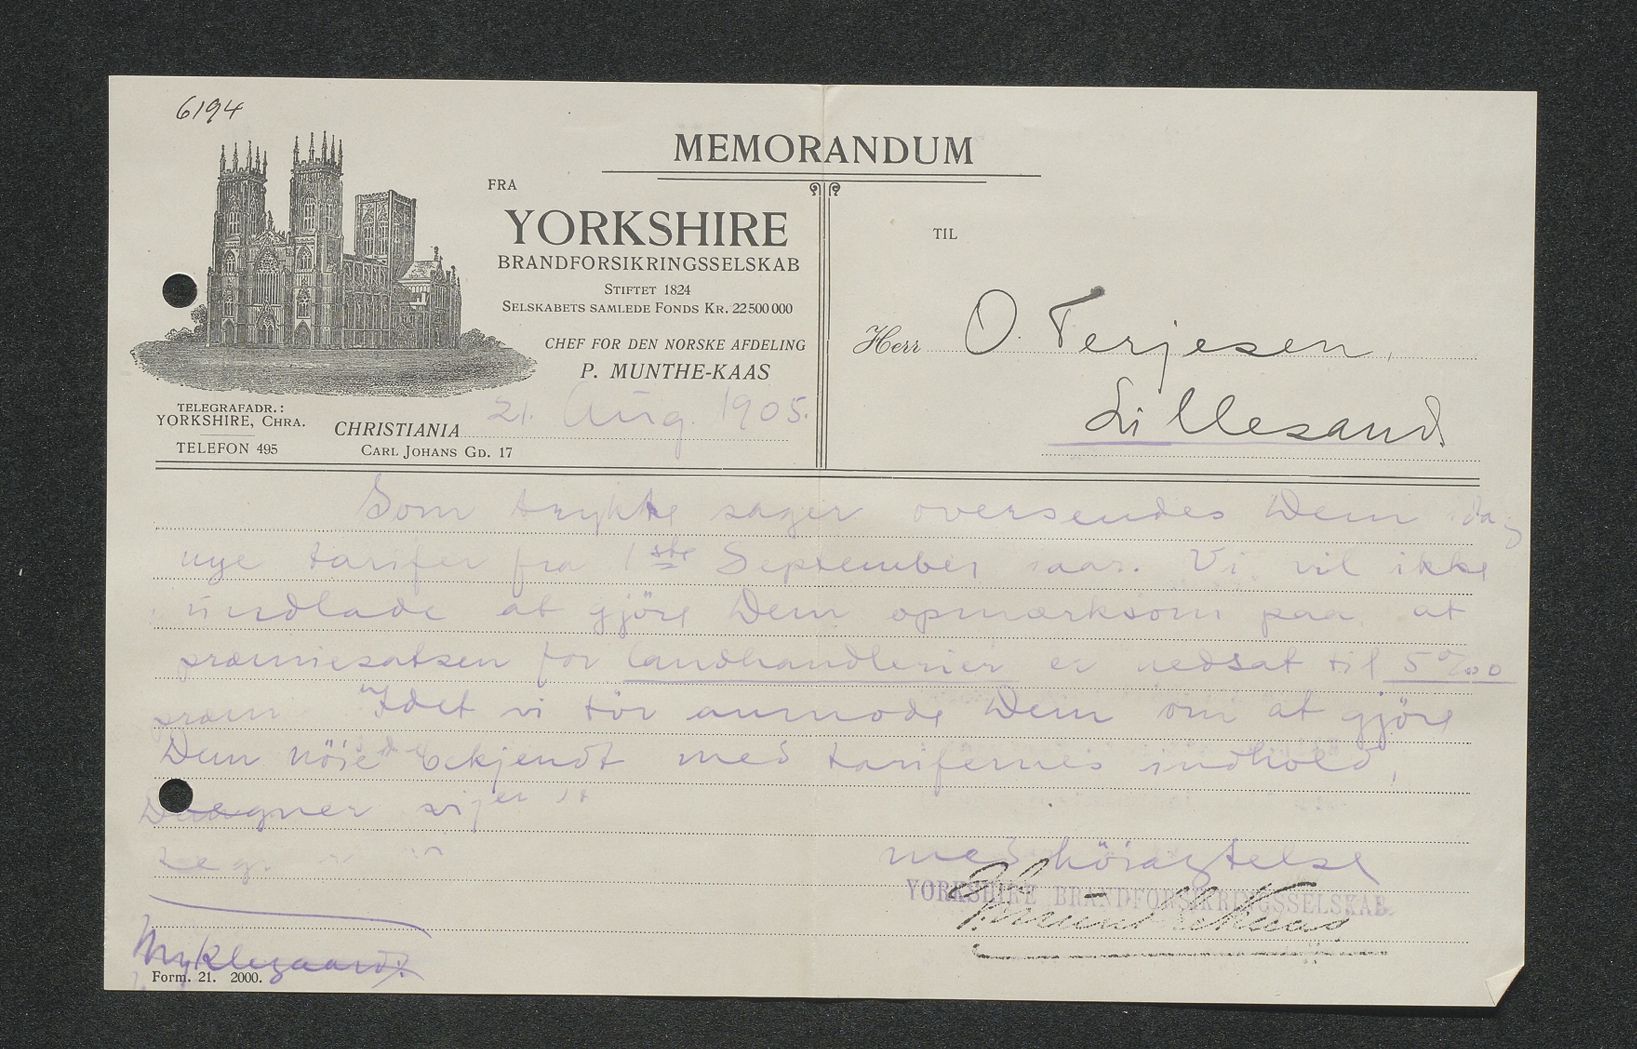 6194
MEMORANDUM
FRA
YORKSHIRE
BRANDFORSIKRINGSSELSKAB
STIFTET 1824
SELSKABETS SAMLEDE FONDS KR. 22500000
CHEF FOR DEN NORSKE AFDELING
P. MUNTHE-KAAS
TELEGRAFADR.:
YORKSHIRE, CHRA.
TELEFON 495
CHRISTIANIA 21. Aug. 1905.
CARL JOHANS GD. 17
TIL
Herr O. Terjesen,
Lillesand.
Som trykte sager oversendes Dem idag
nye tarifer fra 1ste September iaar. Vi vil ikke
undlade at gjöre Dem opmærksom paa at
præmiesatsen for landhandlerier er nedsat til 5 0/00
Idet vi tör anmode Dem om at gjöre
Dem nöie bekjendt med tarifernes indhold,
tegner vi
med höiagtelse
YORKSHIRE BRANDFORSIKRINGSSELSKAB.
P. Munthe Kaas
Myklegaard
Form. 21. 2000.